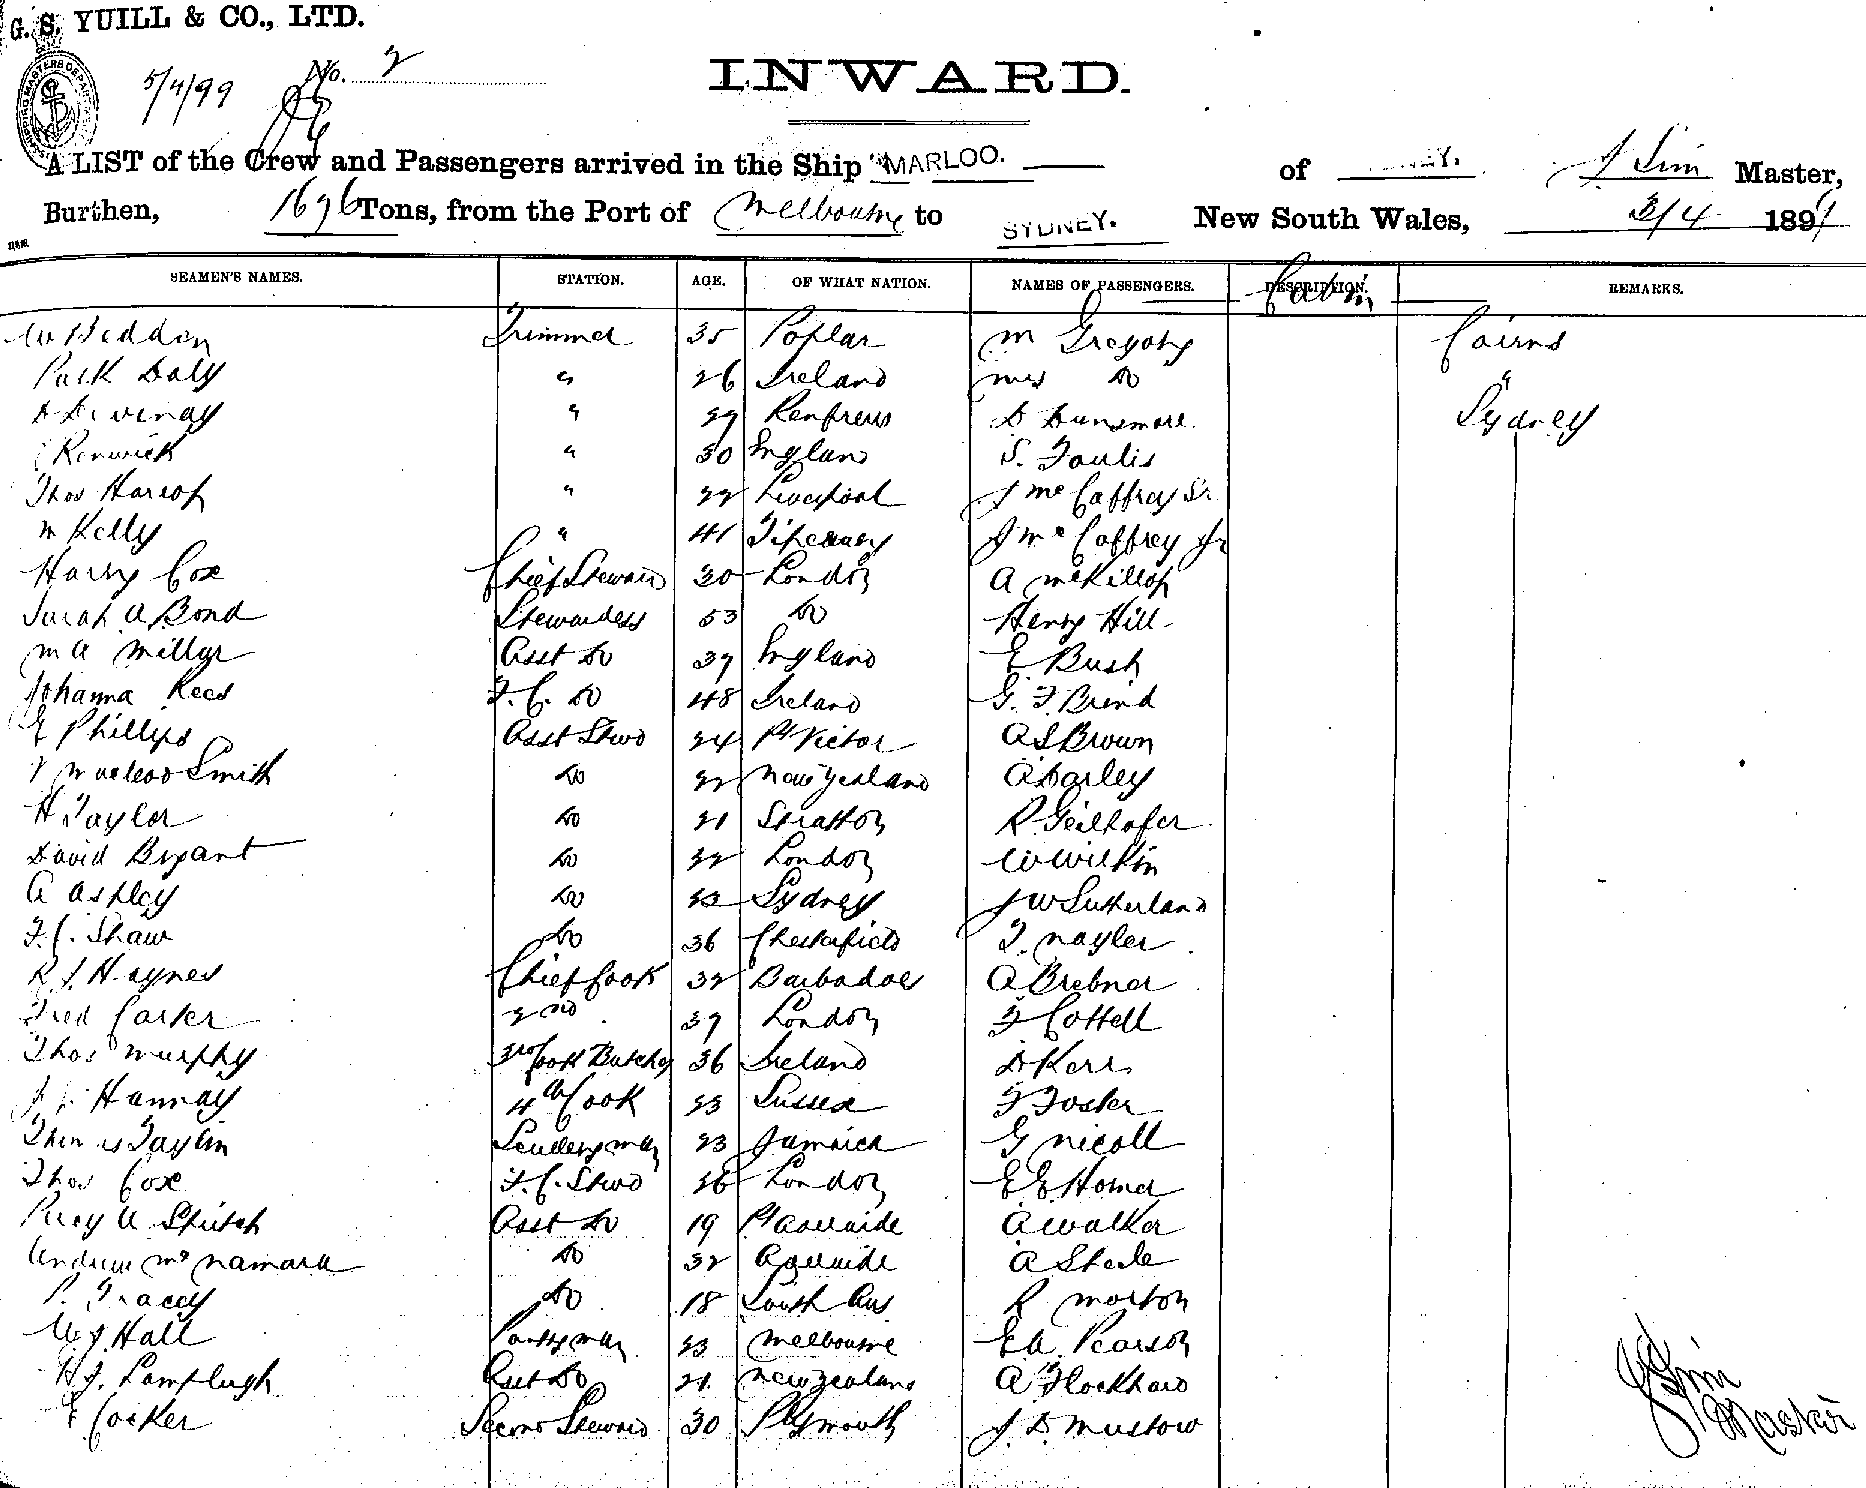 G. S. YUILL & CO., LTD.
5/4/99 No. 2
INWARD.
A LIST of the Crew and Passengers arrived in the Ship "MARLOO. of Sim Master,
Burthen, 1696 Tons, from the Port of Melbourne to SYDNEY. New South Wales, 3/4 189
SEAMEN'S NAMES. STATION. AGE. OF WHAT NATION. NAMES OF PASSENGERS. DESCRIPTION. REMARKS.
Cabin
W Heddon Trimmer 35 Poplar M Gregory Cairns
Patk Daly " 26 Ireland Mrs Do "
D Devinay " 29 Renfrew D Dunsmore Sydney
Renwick " 30 England S. Foulis
Thos Harrop " 22 Liverpool J McCaffrey Sr
M Kelly " 41 Tiperary J McCaffrey Jr
Harry Cox Chief Steward 30 London A McKillop
Sarah A Bond Stewardess 53 Do Henry Hill
M A Millar Asst Do 39 England E Bush
Johanna Rees F.C. Do 48 Ireland G. F. Brind
E Phillips Asst Stwd 24 Pt Victor A S Brown
Macleod Smith Do 22 New Zealand A Darley
H Taylor Do 21 Stratton R Geilhofer
David Bryant Do 22 London W Wilkin
A Ashley Do Sydney J W Sutherland
F. C. Shaw Do 36 Chesterfield T. Nayler
R J Haynes Chief Cook 32 Barbadoes A Brebner
Fred Carter 2nd 39 London F Cottell
Thos Murphy 3rd Cook Butcher 36 Ireland D Kerr
Hannay 4th Cook 23 Sussex F Foster
Taylin 23 Jamaica G Nicoll
Thos Cox F.C. Stwd 26 London E E Horner
Percy A Asst Do 19 Pt Adelaide A Walker
Andrew McNamara Do 32 Adelaide A Steele
P. Tracey Do 18 South Aus R Morton
W J Hall Pantryman 23 Melbourne E A Pearson
H J. Lamplugh Asst Do 21 New Zealand A Flockhard
E Cocker Second Steward 30 Plymouth J. D. Mustow
J Sim
Master